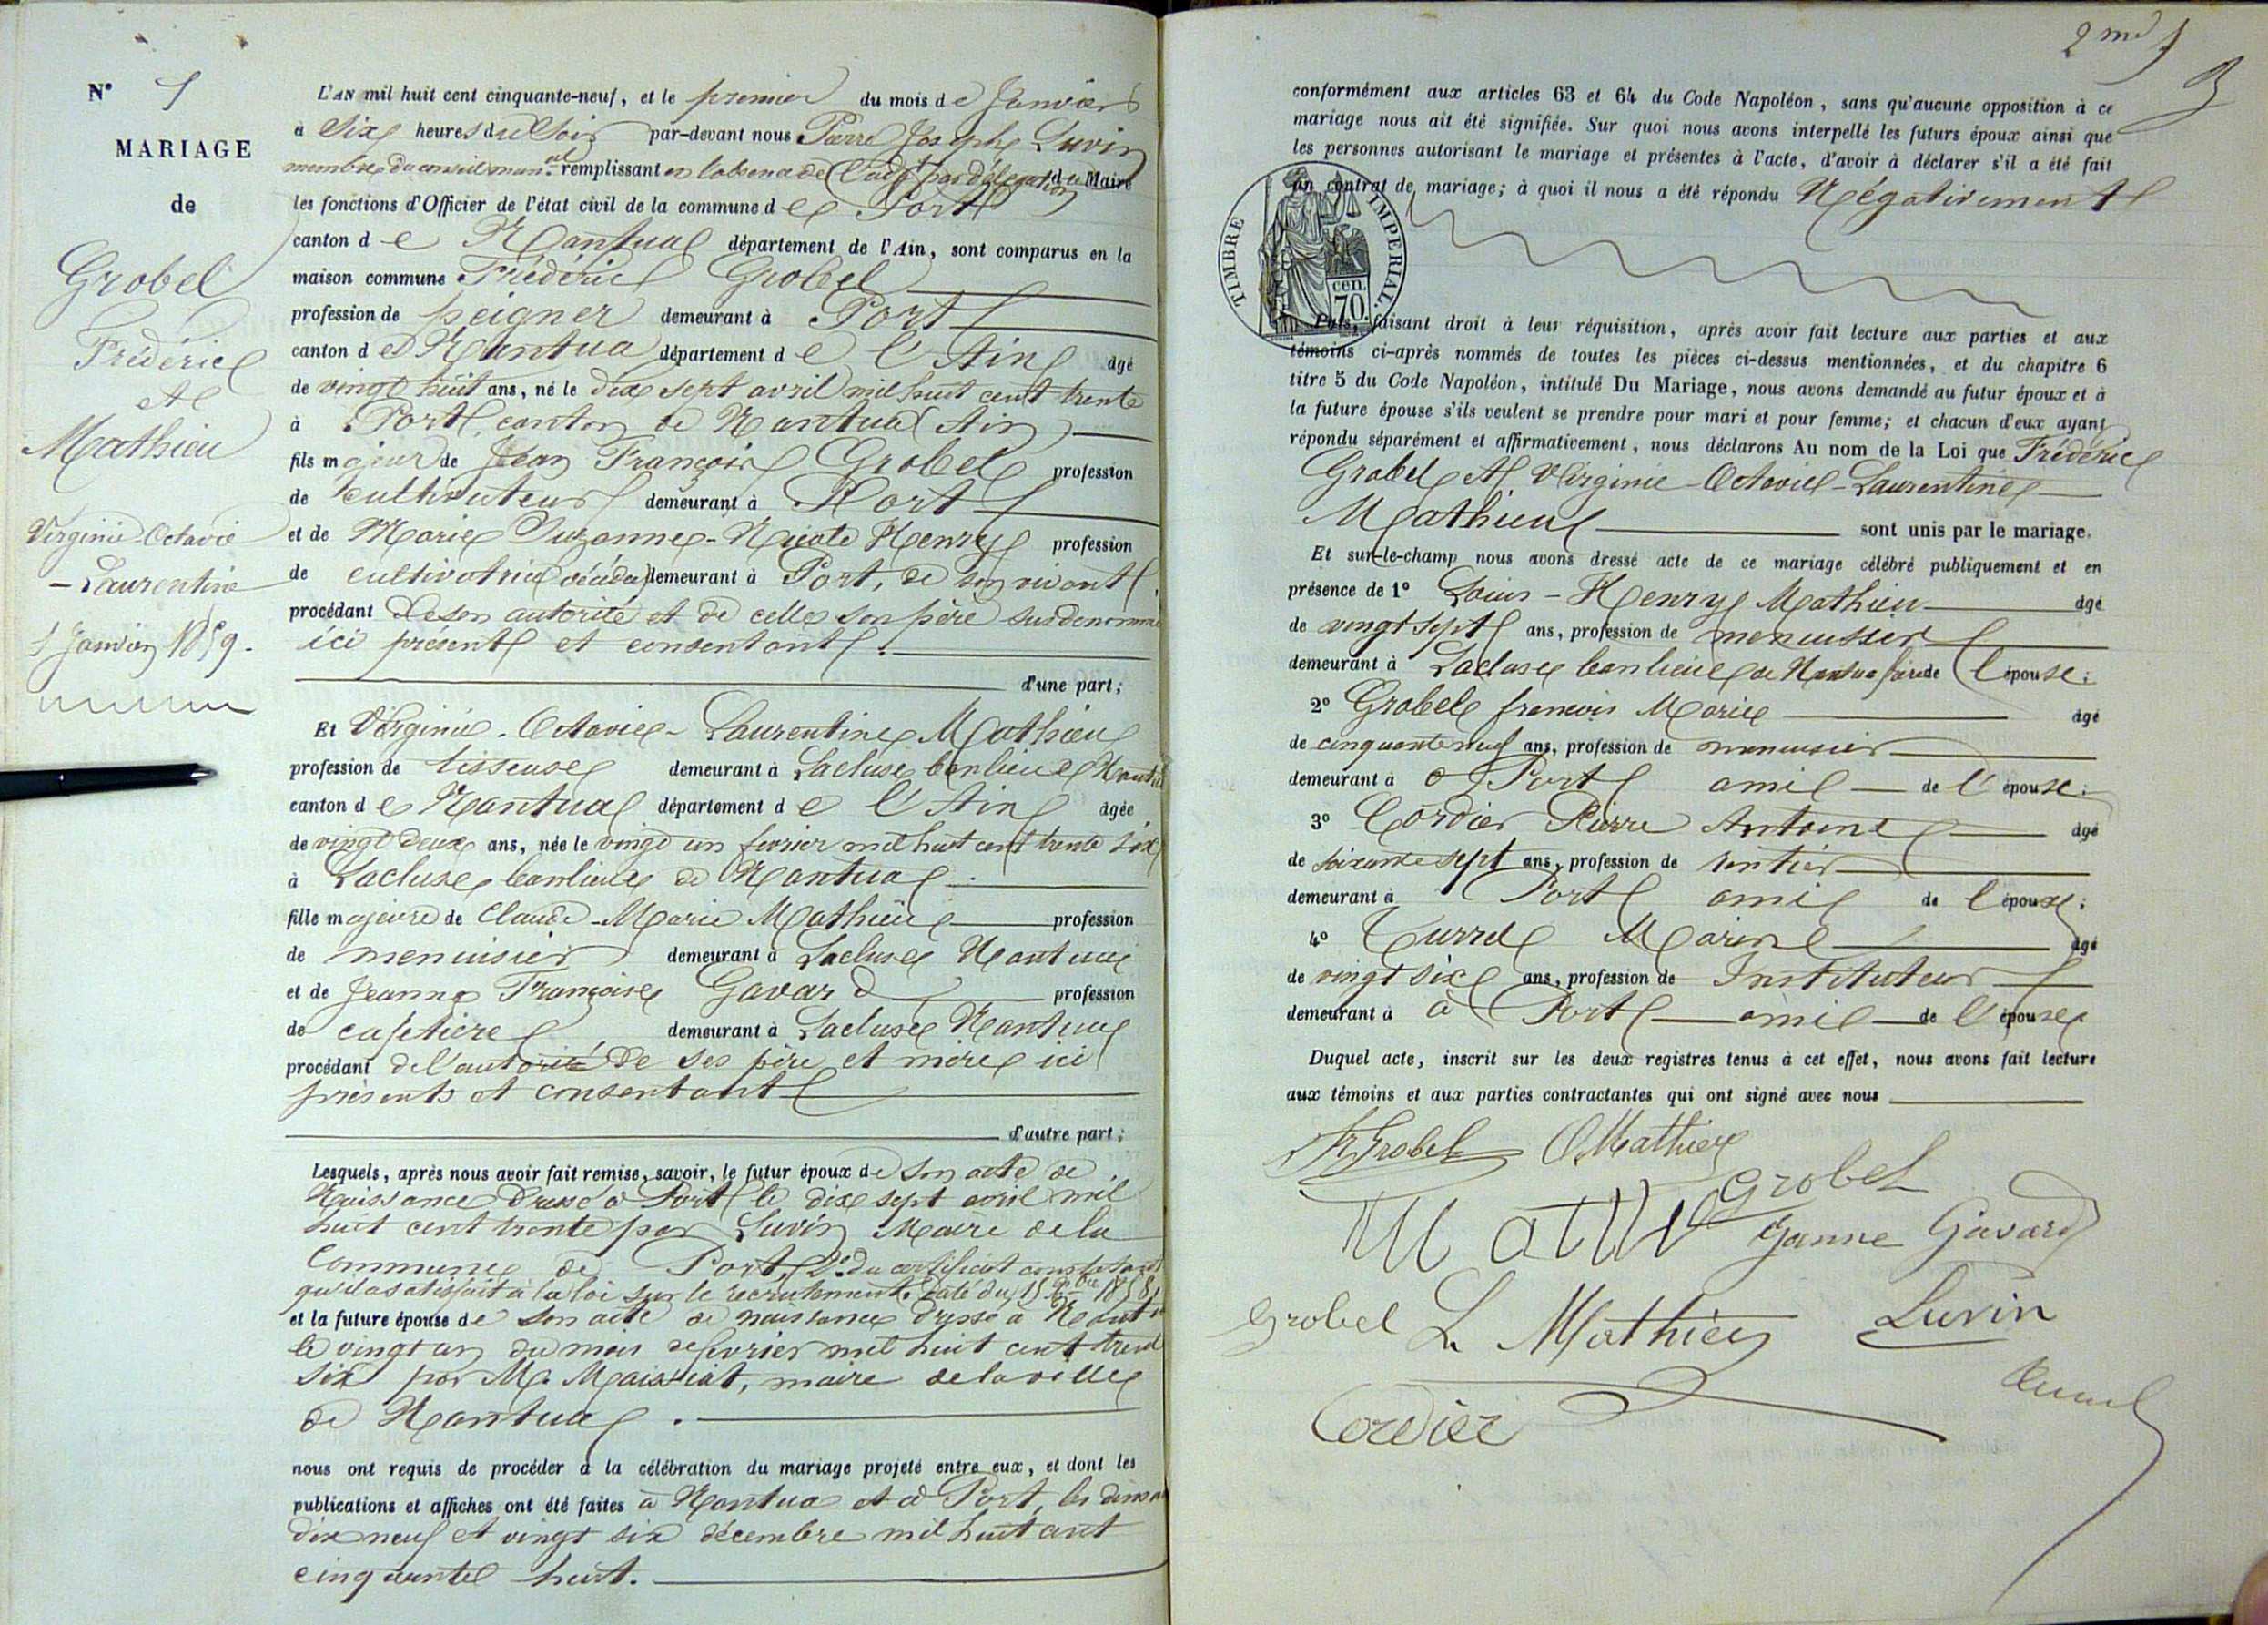 N° 1
MARIAGE
de
Grobel
Frédéric
et
Mathieu
Virginie-Octavie
-Laurentine
1 Janvier 1859.
L'AN mil huit cent cinquante-neuf, et le premier du mois de Janvier
à Six heures du Soir par-devant nous Pierre Joseph Luvin
membre du conseil mun.al remplissant en l'absence de l'adj.t par délégation du Maire
les fonctions d'Officier de l'état civil de la commune de Port
canton de Nantua département de l'Ain, sont comparus en la
maison commune Frédéric Grobel
profession de peigner demeurant à Port
canton de Nantua département de l'Ain âgé
de vingt huit ans, né le dix sept avril mil huit cent trente
à Port canton de Nantua (Ain)
fils majeur de Jean François Grobel profession
de cultivateur demeurant à Port
et de Marie Suzanne-Nicole Henry profession
de cultivatrice (décédée) demeurant à Port, de son vivant,
procédant de son autorité et de celle son père susdénommé
ici présent et consentant.
d'une part;
Et Virginie-Octavie-Laurentine Mathieu
profession de tisseuse demeurant à Lacluse banlieue Nantua
canton de Nantua département de l'Ain âgée
de vingt deux ans, née le vingt un fevrier mil huit cent trente six
à Lacluse banlieue de Nantua
fille majeure de Claude-Marie Mathieu profession
de menuisier demeurant à Lacluse Nantua
et de Jeanne Françoise Gavard profession
de cafetière demeurant à Lacluse Nantua
procédant de l'autorité de ses père et mère ici
présents et consentant
d'autre part;
Lesquels, après nous avoir fait remise, savoir, le futur époux de son acte de
Naissance Dressé à Port le dix sept avril mil
huit cent trente par Luvin Maire de la
Commune de Port, 2° du certificat constatant
qu'il a satisfait à la loi sur le recrutement daté du 15 Xbre 1858,
et la future épouse de son acte de naissance dressé à Nantua
le vingt un du mois de fevrier mil huit cent trente
six par Mr. Maissiat, maire de la ville
de Nantua.
nous ont requis de procéder à la célébration du mariage projeté entre eux, et dont les
publications et affiches ont été faites à Nantua et à Port, les diman
dix neuf et vingt six décembre mil huit cent
cinquante huit.
2me
conformément aux articles 63 et 64 du Code Napoléon, sans qu'aucune opposition à ce
mariage nous ait été signifiée. Sur quoi nous avons interpellé les futurs époux ainsi que
les personnes autorisant le mariage et présentes à l'acte, d'avoir à déclarer s'il a été fait
un contrat de mariage; à quoi il nous a été répondu Négativement
TIMBRE IMPERIAL.
70. cen.
Puis, faisant droit à leur réquisition, après avoir fait lecture aux parties et aux
témoins ci-après nommés de toutes les pièces ci-dessus mentionnées, et du chapitre 6
titre 5 du Code Napoléon, intitulé Du Mariage, nous avons demandé au futur époux et à
la future épouse s'ils veulent se prendre pour mari et pour femme; et chacun d'eux ayant
répondu séparément et affirmativement, nous déclarons Au nom de la Loi que Frédéric
Grobel et Virginie-Octavie-Laurentine
Mathieu sont unis par le mariage.
Et sur-le-champ nous avons dressé acte de ce mariage célébré publiquement et en
présence de 1° Louis-Henry Mathieu âgé
de vingt sept ans, profession de menuisier
demeurant à Lacluse banlieue de Nantua frère de l'épouse;
2° Grobel francois Marie âgé
de cinquante neuf ans, profession de menuisier
demeurant à à Port ami de l'épouse;
3° Cordier Pierre Antoine âgé
de soixante sept ans, profession de rentier
demeurant à Port ami de l'épouse;
4° Turrel Marin âgé
de vingt six ans, profession de Instituteur
demeurant à à Port ami de l'épouse
Duquel acte, inscrit sur les deux registres tenus à cet effet, nous avons fait lecture
aux témoins et aux parties contractantes qui ont signé avec nous
fr Grobel O. Mathieu
Grobel
Janne Gavard
Grobel L. Mathieu Luvin
Cordier